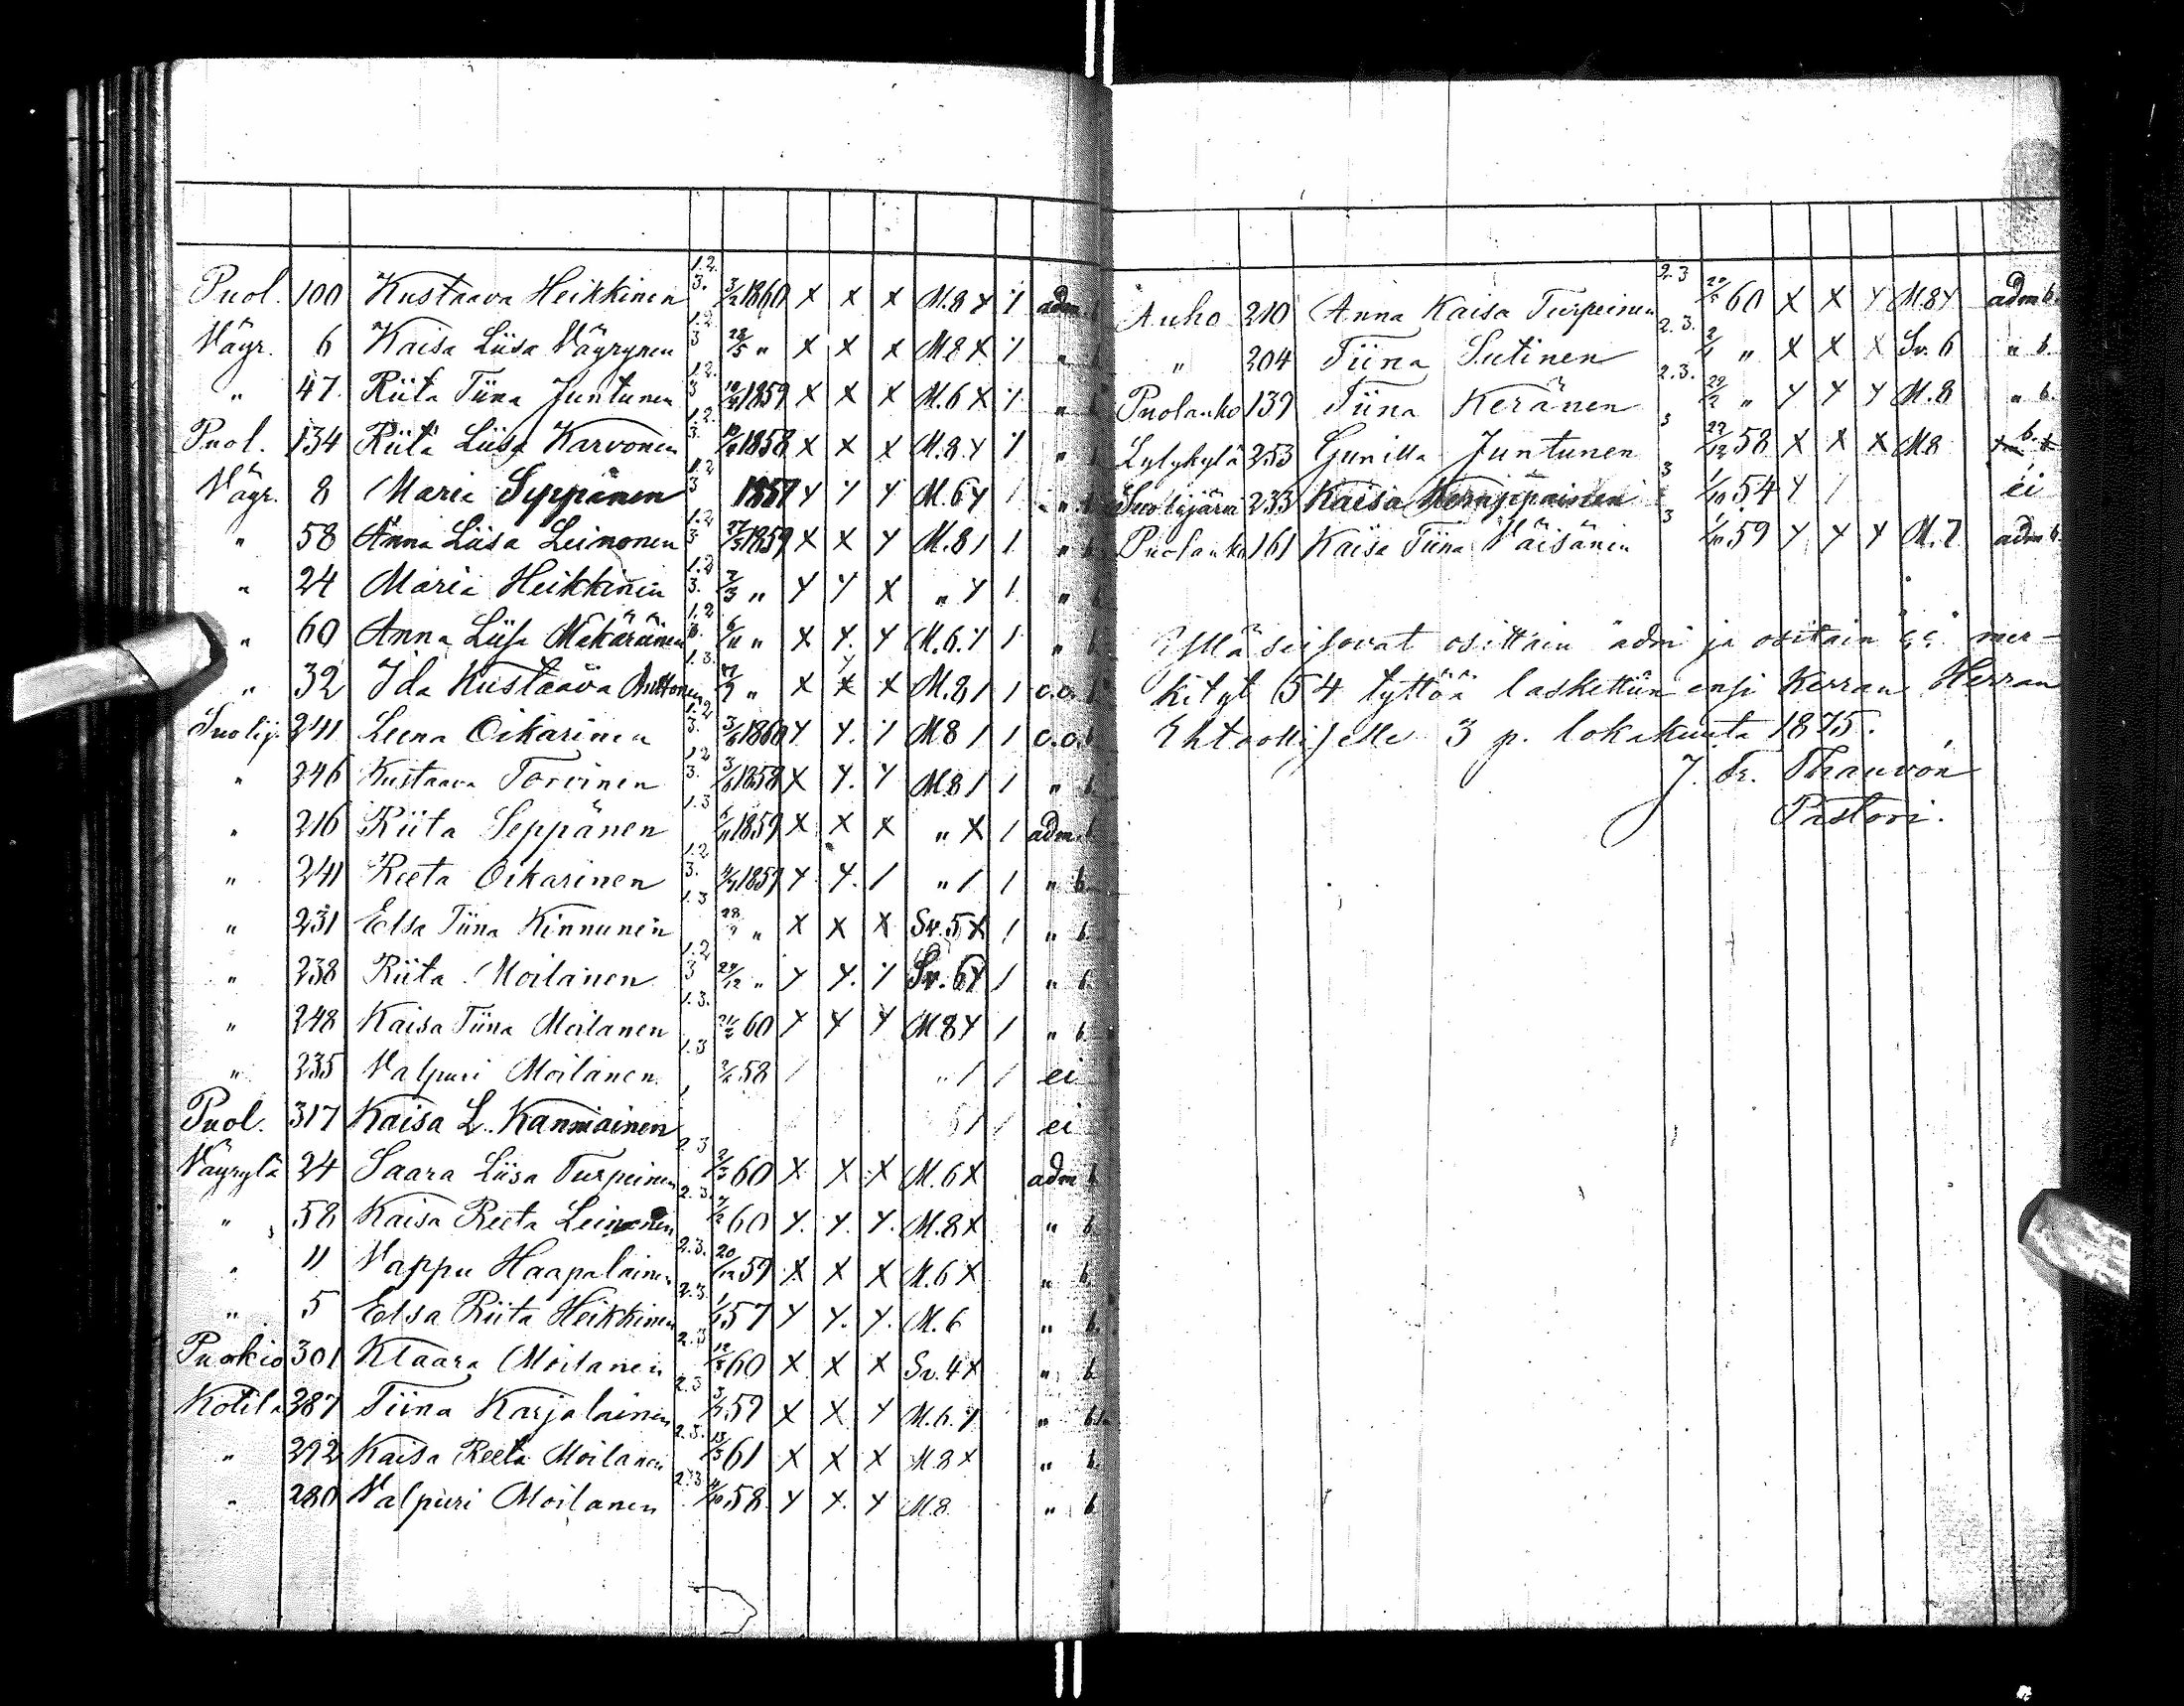 Puol. 100 Kustaava Heikkinen 1.2. 3. 3/2 1860 x x x M.8 y 1 adm. b.
Väyr. 6 Kaisa Liisa Väyrynen 1.2. 3 28/5 " x x x M8 x 1 " b.
" 47. Riita Tiina Juntunen 1.2. 3 1859 x x x M.6 x 1 " b.
Puol. 134 Riita Liisa Karvonen 1.2. 3. 1858 x x x M.8 y 1 " b.
Väyr. 8 Maria Seppänen 1.2 3 1857 y y y M.6 y 1 " b.
" 58 Anna Liisa Leinonen 1.2 3 27/3 1859 x x y M.8 1 1 " b.
" 24 Maria Heikkinen 1.2 3. 7/3 " y y x " y 1 " b.
" 60 Anna Liisa Makäräinen 1.2 3. 6/11 " x y. y M.6. y 1 " b.
" 32 Ida Kustaava Anttonen 1.3. " x x x M.8 1 1 c.o. b.
Suolij. 241 Leena Oikarinen 1.2 3. 3/6 1860 y y. 1 M8 1 1 c.o. b.
" 246 Kustaava Torvinen 1.2 3. 3/6 1858 x y. y M.8 1 1 " b.
" 216 Riita Seppänen 1.3 1859 x x x " x 1 adm. b.
" 241 Reeta Oikarinen 1.2 3. 1857 y y. 1 " 1 1 " b.
" 231 Elsa Tiina Kinnunen 1.3 " x x x Sv.5 x 1 " b.
" 238 Riita Moilanen 1.2 3 29/12 " y y. y Sv.6 y 1 " b.
" 248 Kaisa Tiina Moilanen 1.3. 60 y y y M8 y 1 " b.
" 235 Valpuri Moilanen 1.3 58 / " 1 1 ei
Puol. 317 Kaisa L. Kanniainen 1 1 ei
Väyrylä 24 Saara Liisa Turpeinen 2.3 60 x x x M.6 x adm b.
" 58 Kaisa Reeta Leinonen 2.3. 60 y. y. y. M.8 x " b.
" 11 Vappu Haapalainen 2.3. 20/12 59 x x x M.6 x " b.
" 5 Elsa Riita Heikkinen 2.3. 57 y y. y. M.6 " b.
Puokio 301 Klaara Moilanen 2.3 60 x x x Sv.4 x " b.
Kotila 287 Tiina Karjalainen 2.3 59 x x y M.6. y " b.
" 292 Kaisa Reeta Moilanen 2.3. 13/3 61 x x x M.8 x " b.
" 280 Valpuri Moilanen 2.3 58 y y. y M.8. " b.
Auho 210 Anna Kaisa Turpeinen 2.3 60 x x y M.8 y adm b.
" 204 Tiina Sutinen 2.3. " x x x Sv. 6 " b.
Puolanko 139 Tiina Keränen 2.3. " y y y M.8 " b.
Lylykylä 253 Gunilla Juntunen 3 29/12 58 x x x M8 b.
Suolijärvi 233 Kaisa 3 1/10 54 y 1 ei
Puolanko 161 Kaisa Tiina Väisänen 3 1/10 59 y y y M.7 adm b.
Yllä seisovat osittain adm ja ositain c.c. mer-
kityt 54 tyttöä laskettiin ensi kerran Herran
Ehtoolliselle 3 p. lokakuuta 1875.
J. Fr. Thauvon
Pastori.